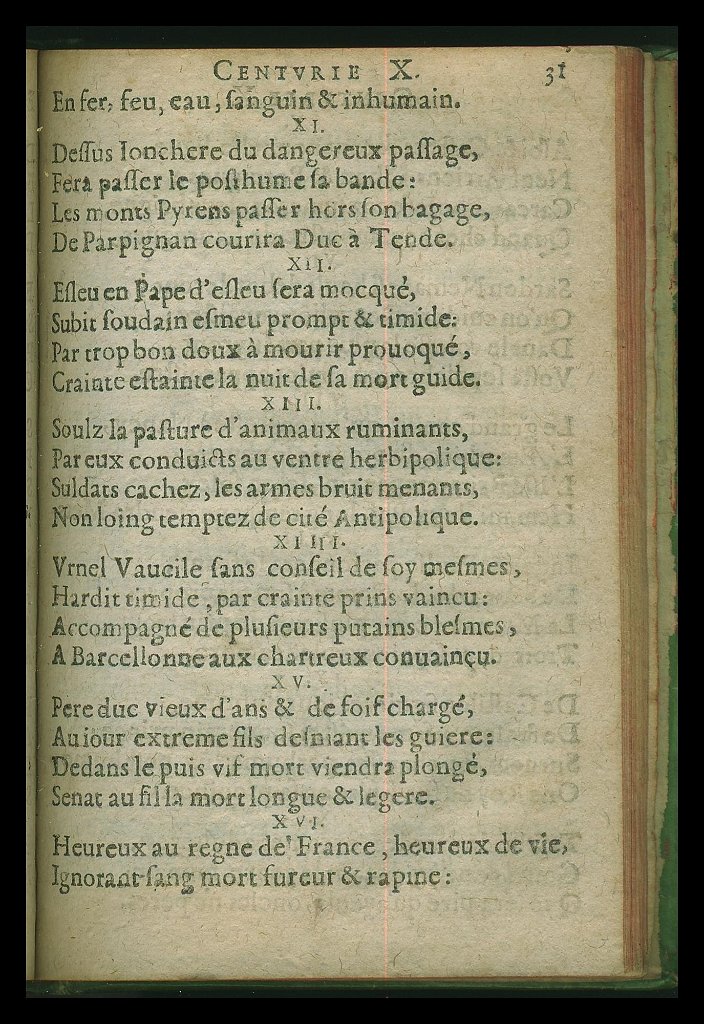 CENTVRIE X. 31
En fer, feu, eau, ſanguin & inhumain.
XI.
Deſſus Ionchere du dangereux paſſage,
Fera paſſer le poſthume ſa bande:
Les monts Pyrens paſſer hors ſon bagage,
De Parpignan courira Duc à Tende.
XII.
Eſleu en Pape d'eſleu ſera mocqué,
Subit ſoudain eſmeu prompt & timide:
Par trop bon doux à mourir prouoqué,
Crainte eſtainte la nuit de ſa mort guide.
XIII.
Soulz la paſture d'animaux ruminants,
Par eux conduicts au ventre herbipolique:
Suldats cachez, les armes bruit menants,
Non loing temptez de cité Antipolique.
XIIII.
Vrnel Vaucile ſans conſeil de ſoy meſmes,
Hardit timide, par crainte prins vaincu:
Accompagné de pluſieurs putains bleſmes,
A Barcellonne aux chartreux conuainçu.
XV.
Pere duc vieux d'ans & de ſoif chargé,
Au iour extreme fils deſniant les guiere:
Dedans le puis vif mort viendra plongé,
Senat au fil la mort longue & legere.
XVI.
Heureux au regne de France, heureux de vie,
Ignorant ſang mort fureur & rapine: